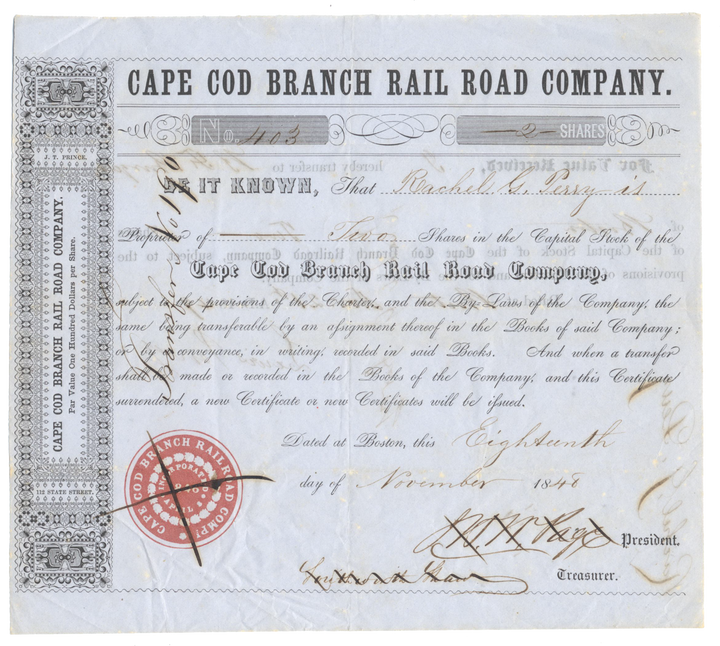 CAPE COD BRANCH RAIL ROAD COMPANY.
No. 403
—2— SHARES
J. T. PRINCE.
CAPE COD BRANCH RAIL ROAD COMPANY.
Par Value One Hundred Dollars per Share.
112 STATE STREET.
BE IT KNOWN, That Rachel G. Perry is
Proprietor of Two Shares in the Capital Stock of the
Cape Cod Branch Rail Road Company,
subject to the provisions of the Charter, and the By-Laws of the Company, the
same being transferable by an assignment thereof in the Books of said Company;
or by a conveyance, in writing, recorded in said Books. And when a transfer
shall be made or recorded in the Books of the Company, and this Certificate
surrendered, a new Certificate or new Certificates will be issued.
Transfer No 1190
Dated at Boston, this Eighteenth
day of November 1848
CAPE COD BRANCH RAILROAD COMPY
INCORPORATED
President.
Southworth Shaw Treasurer.
For Value Received, hereby transfer to
of the Capital Stock of the Cape Cod Branch Railroad Company, subject to the